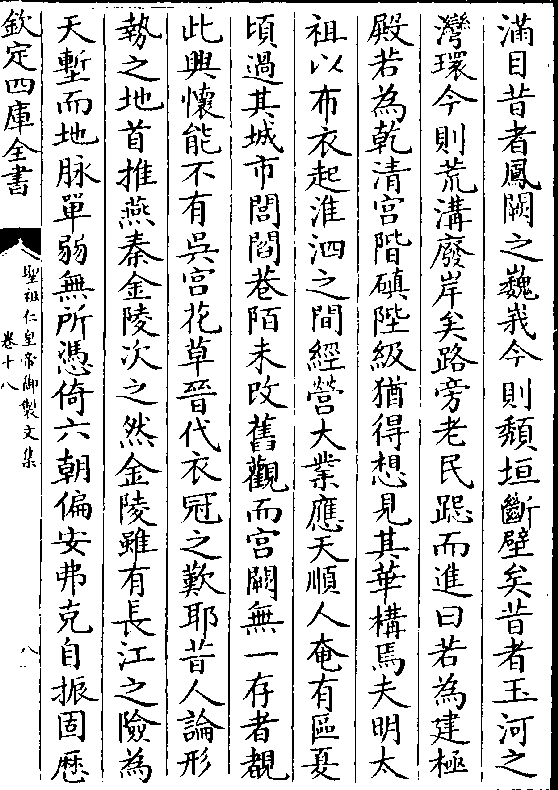 滿目昔者鳳闕之巍峩今則頽垣斷壁矣昔者玉河之
灣環今則荒溝廢岸矣路旁老民跽而進曰若為建極
殿若為乾清宫階磌陛級猶得想見其華構焉夫明太
祖以布衣起淮泗之間經營大業應天順人奄有區夏
頃過其城市閭閻巷陌未改舊觀而宫闕無一存者覩
此興懷能不有吳宫花草晉代衣冠之歎耶昔人論形
勢之地首推燕秦金陵次之然金陵雖有長江之險為
天塹而地脉單弱無所憑倚六朝偏安弗克自振固歴
欽定四庫全書
聖祖仁皇帝御製文集
卷十八
八